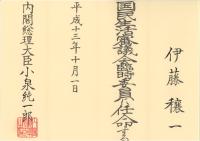 伊藤穰一
国民生活審議会臨時委員に任命する
平成十三年十月一日
内閣総理大臣小泉純一郎